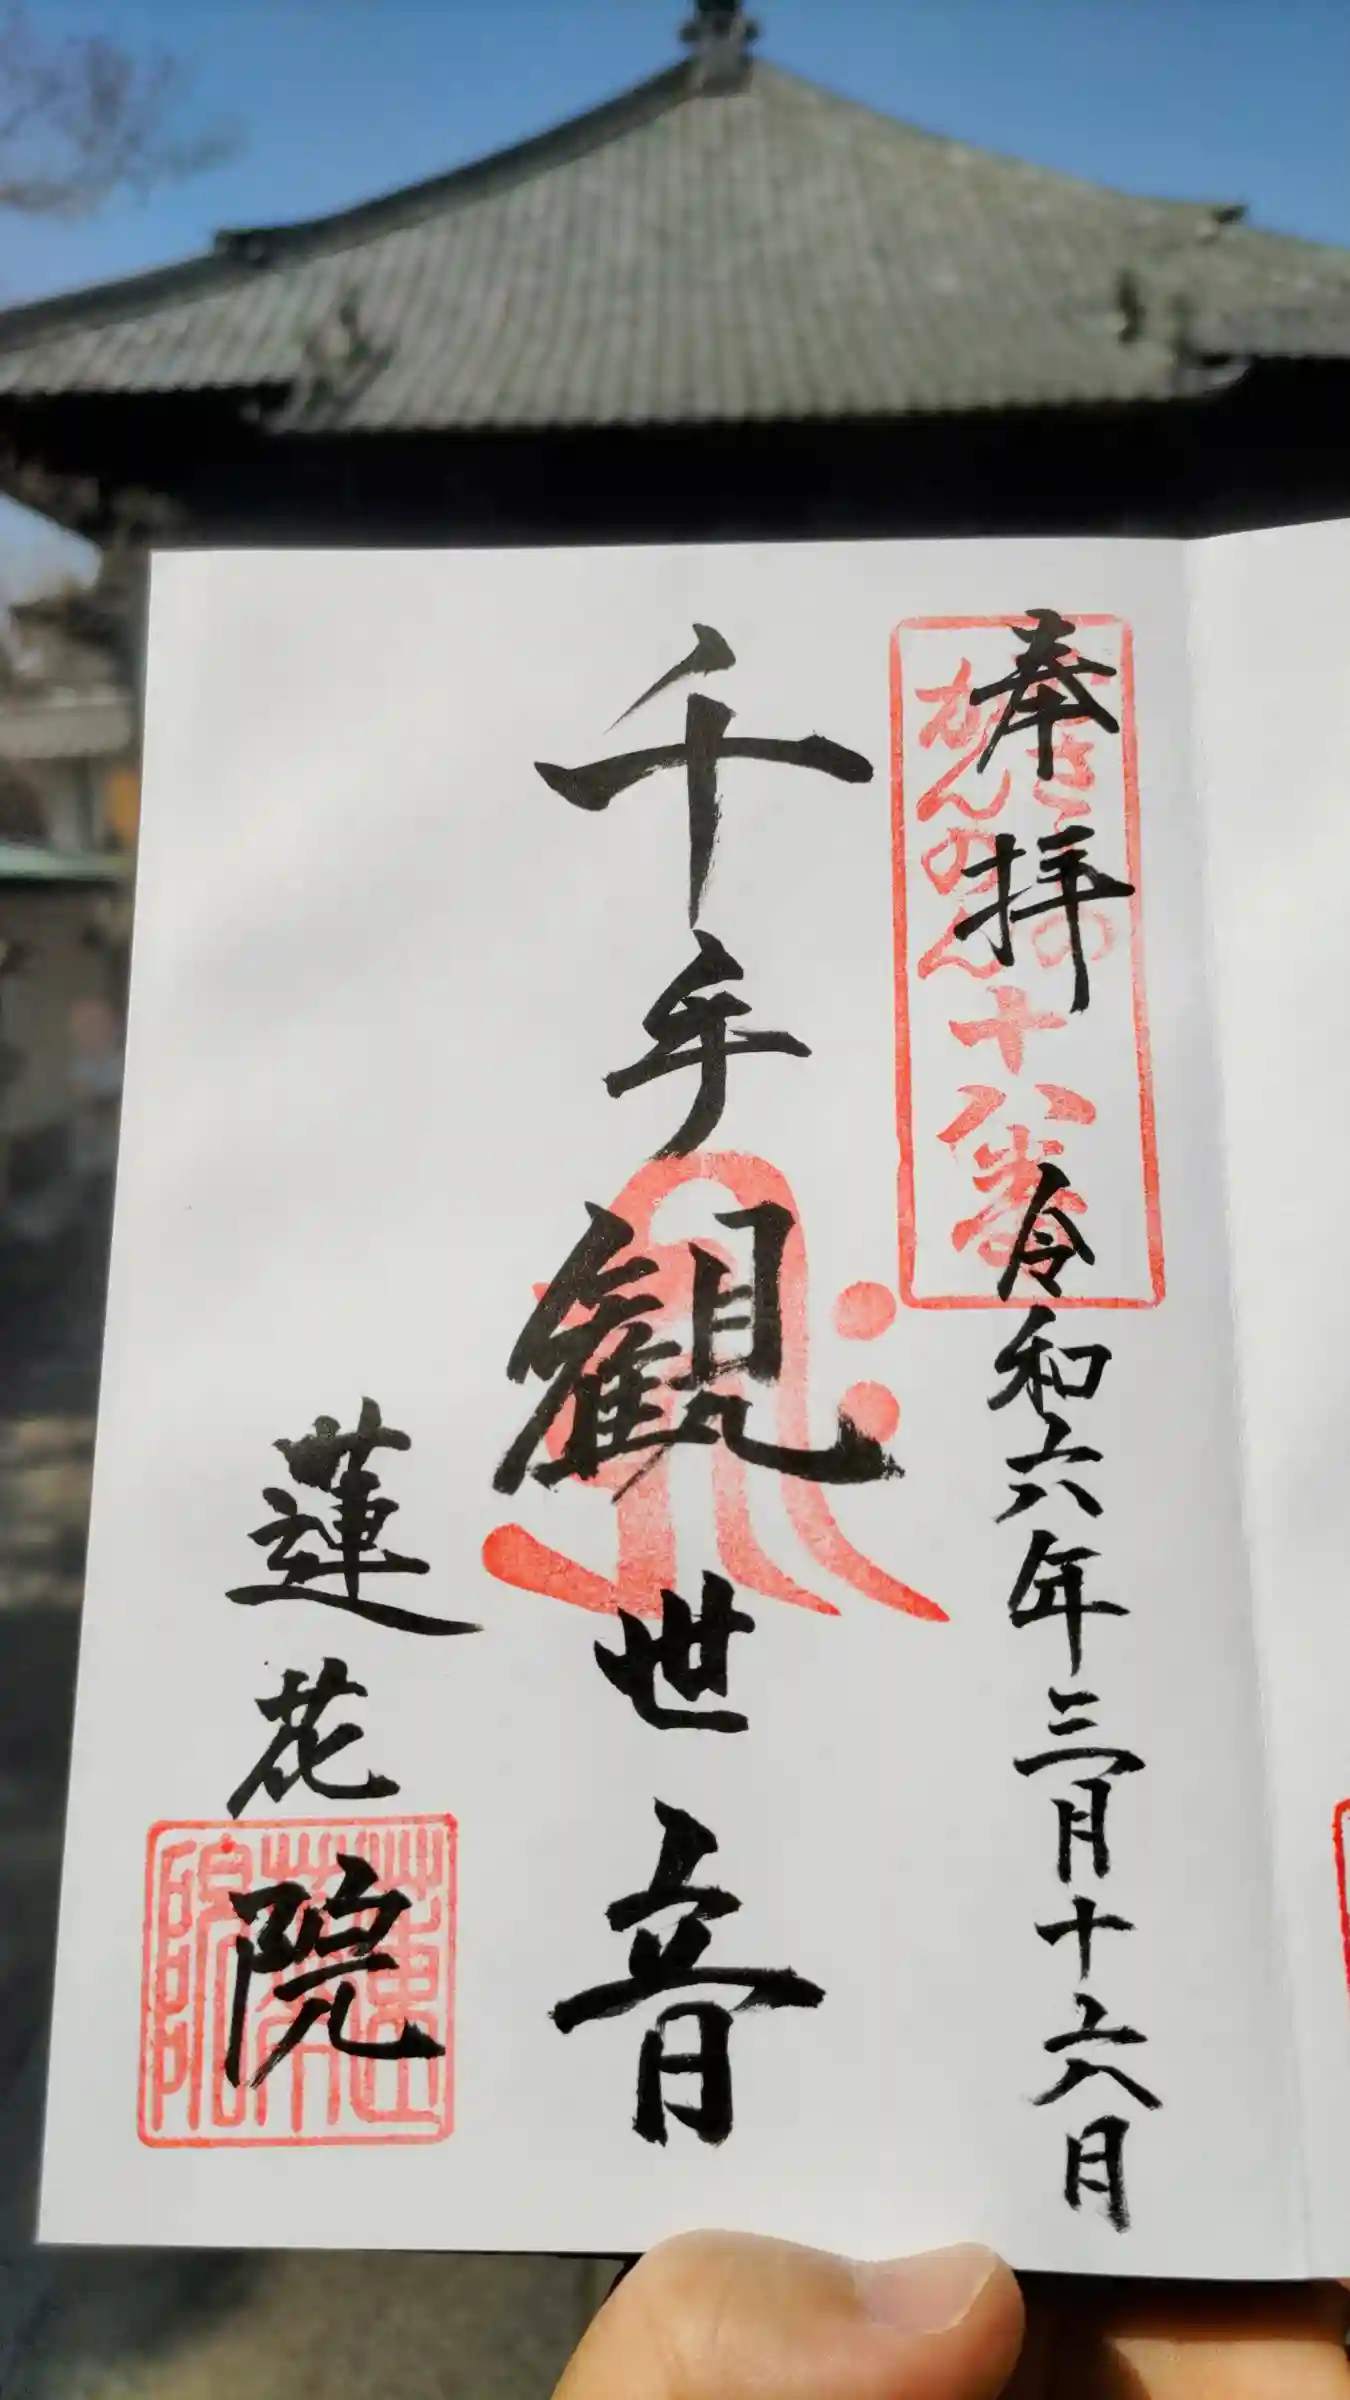 奉拝
令和六年三月十六日
むさしの
かんのん
十八番
千手観世音
蓮花院